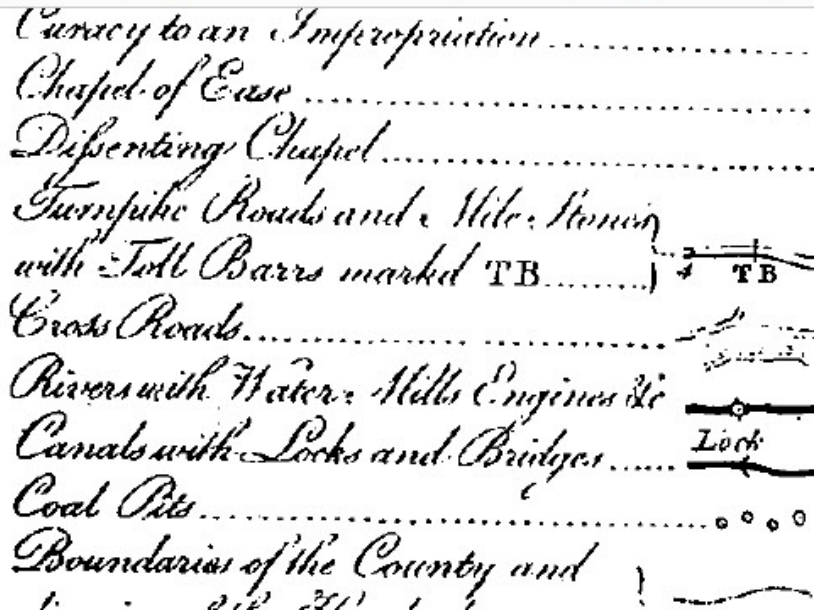 Curacy to an Impropriation
Chapel of Ease
Diſsenting Chapel
Turnpike Roads and Mile Stones
with Toll Barrs markd TB
TB
Cross Roads
Rivers with Water Mills Engines &c
Canals with Locks and Bridges
Lock
Coal Pits
Boundaries of the County and